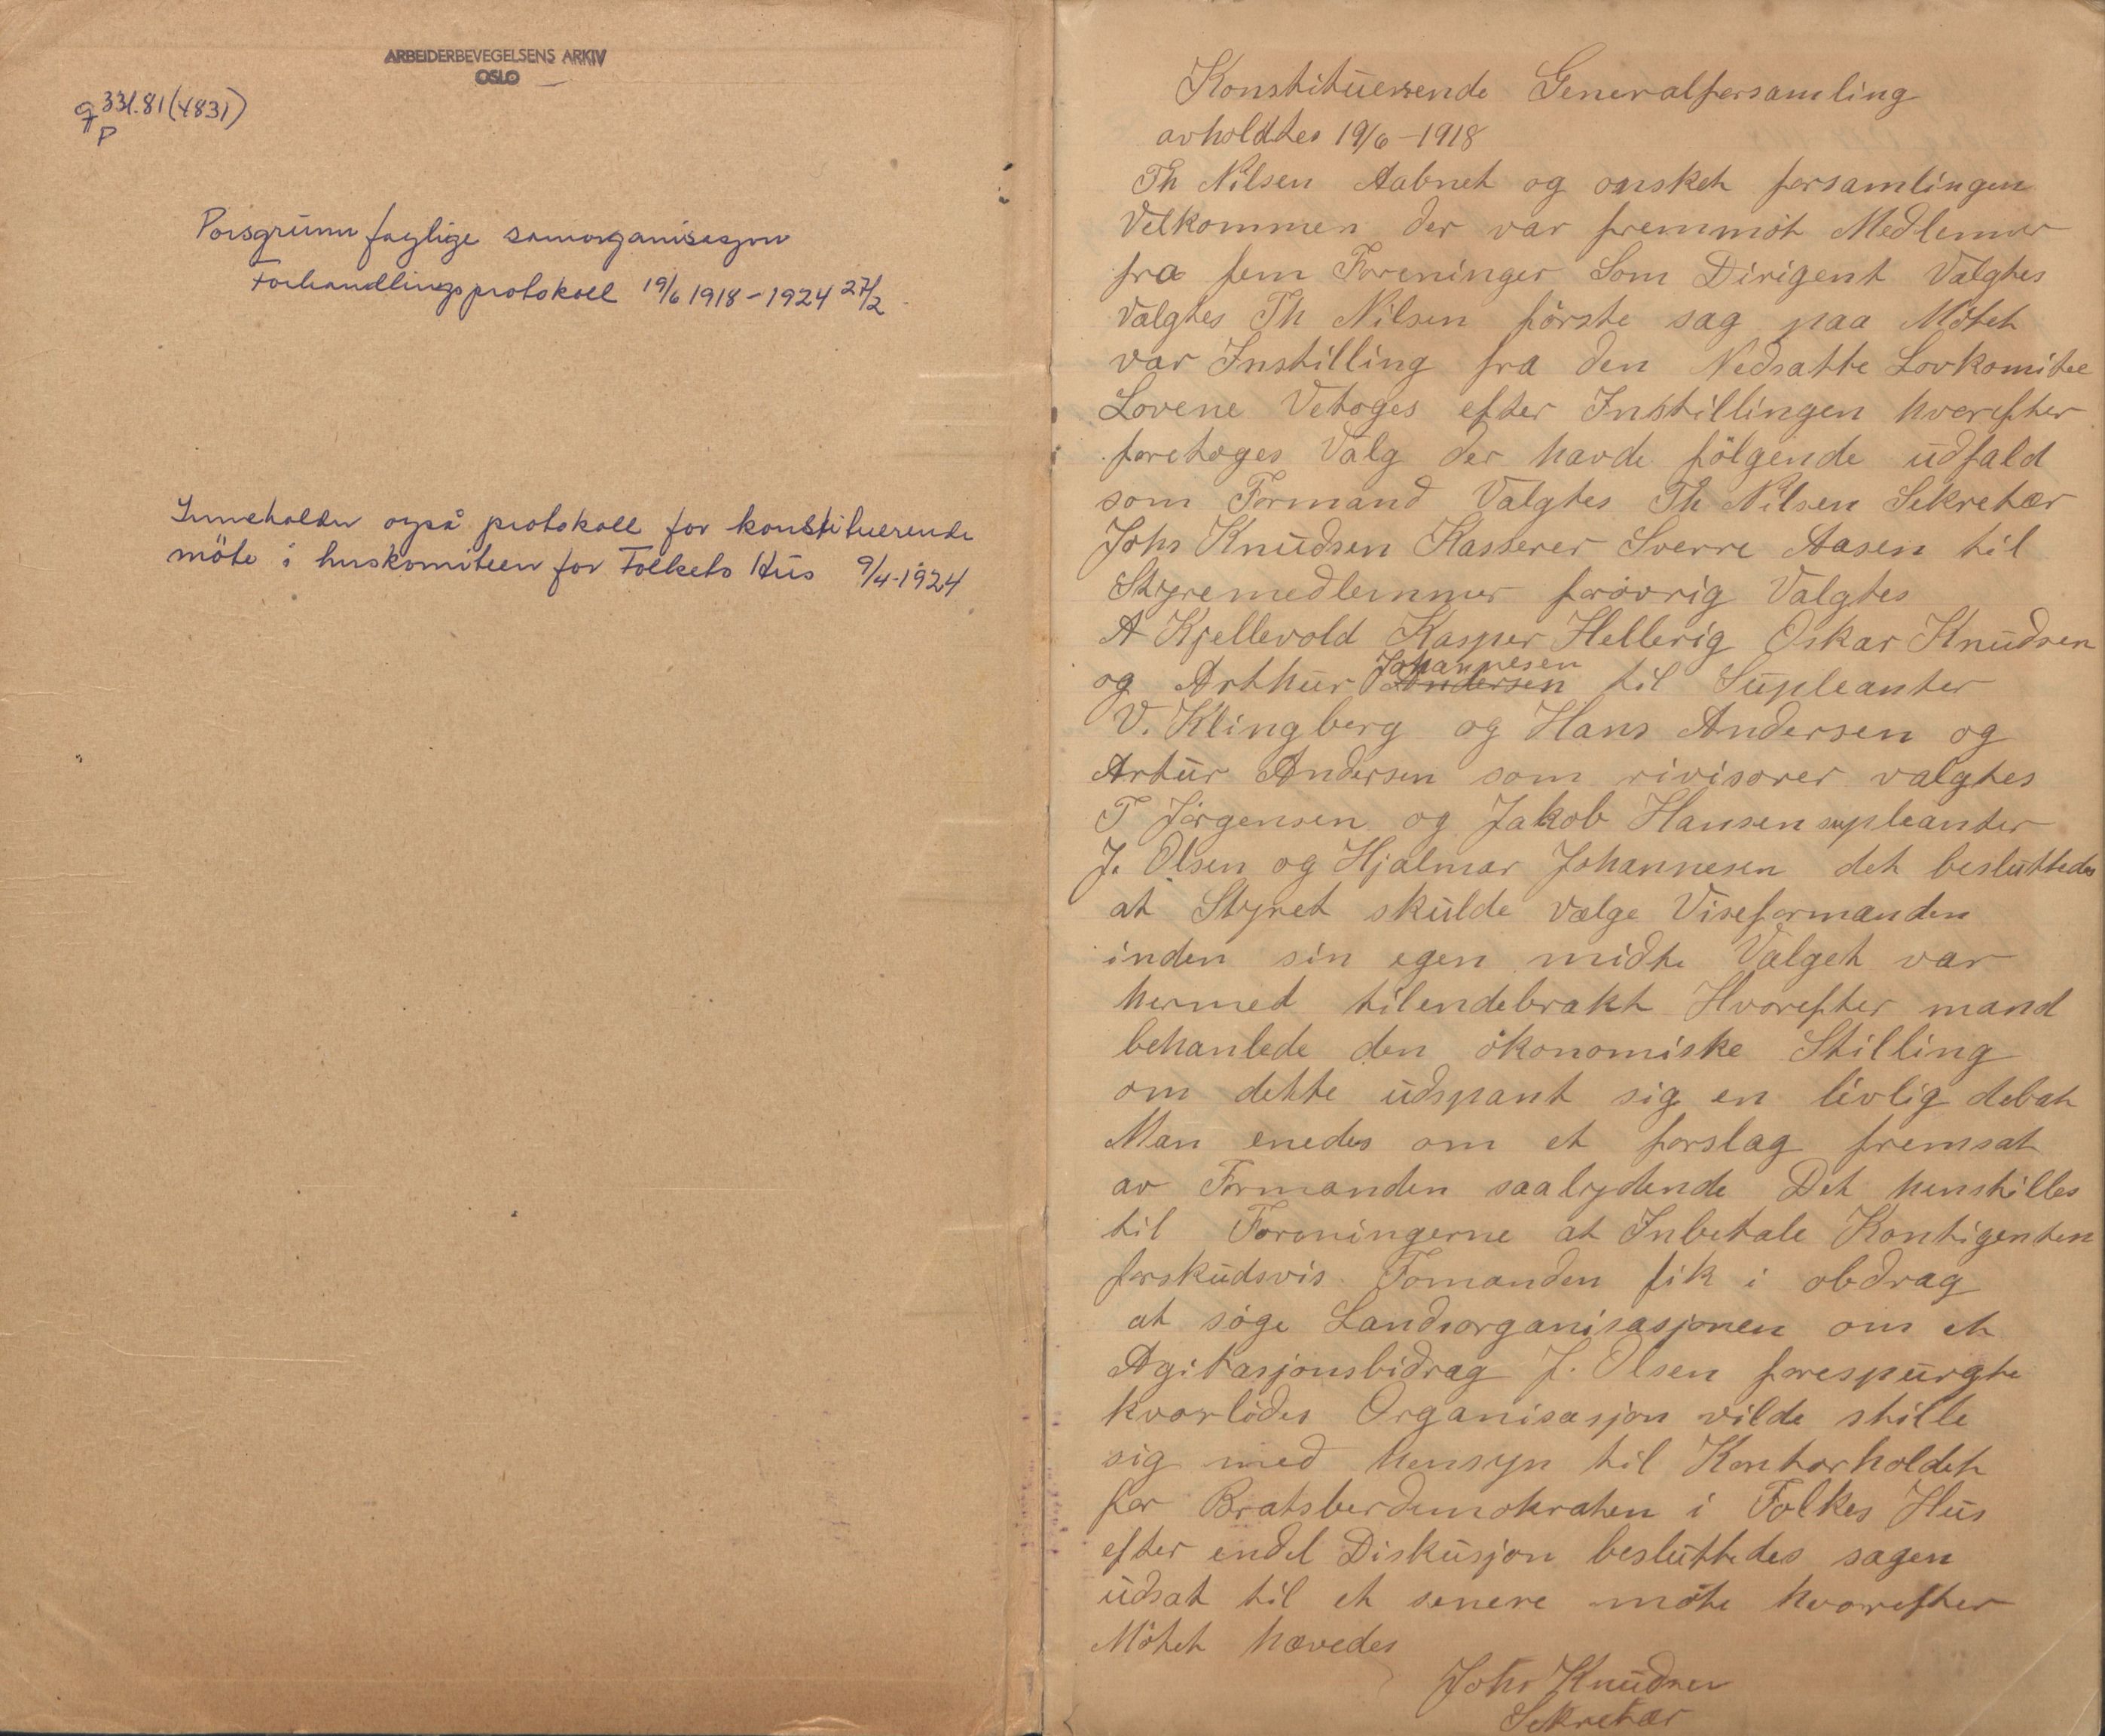 ARBEIDERBEVEGELSENS ARKIV
OSLO
q 331.81(4831)
P
Porsgrunn faglige samorganisasjon
Forhandlingsprotokoll 19/6 1918 - 1924 27/2
Inneholder også protokoll for konstituerende
möte i huskomiteen for Folkets Hus 9/4-1924
Konstituerende Generalforsamling
avholdtes 19/6 - 1918
Th Nilsen Aabnet og onsket forsamlingen
Velkommen der var fremmöt Medlemmer
fra fem Foreninger Som Dirigent Valgtes
Valgtes Th Nilsen förste sag paa Mötet
var Instilling fra den Nedsatte Lovkomitee
Lovene Vetoges efter Instillingen hvorefter
foretoges Valg der havde fölgende udfald
som Formand Valgtes Th Nilsen Sekretær
Johs Knudsen Kasserer Sverre Aasen til
Styremedlemmer forövrig Valgtes
A Kjellevold Kasper Hellerig Oskar Knudsen
og Arthur Andersen Johannesen til Supleanter
V. Klingberg og Hans Andersen og
Artur Andersen som rivisorer valgtes
T Jörgensen og Jakob Hansen supleanter
J. Olsen og Hjalmar Johannesen det besluttedes
at Styret skulde vælge Viseformanden
inden sin egen midte Valget var
hermed tilendebrakt Hvorefter mand
behanlede den ökonomiske Stilling
om dette udspant sig en livlig debat
Man enedes om et forslag fremsat
av Formanden saalydende Det henstilles
til Foreningerne at Inbetale Kontigenten
forskudsvis. Fomanden fik i obdrag
at söge Landsorganisasjonen om et
Agitasjonsbidrag J. Olsen forespurgte
hvorledes Organisasjon vilde stille
sig med hensyn til Kontorholdet
for Bratsberdemokraten i Folkes Hus
efter endel Diskusjon besluttedes sagen
udsat til et senere möte hvorefter
Mötet hævedes
Johs Knudsen
Sekretær